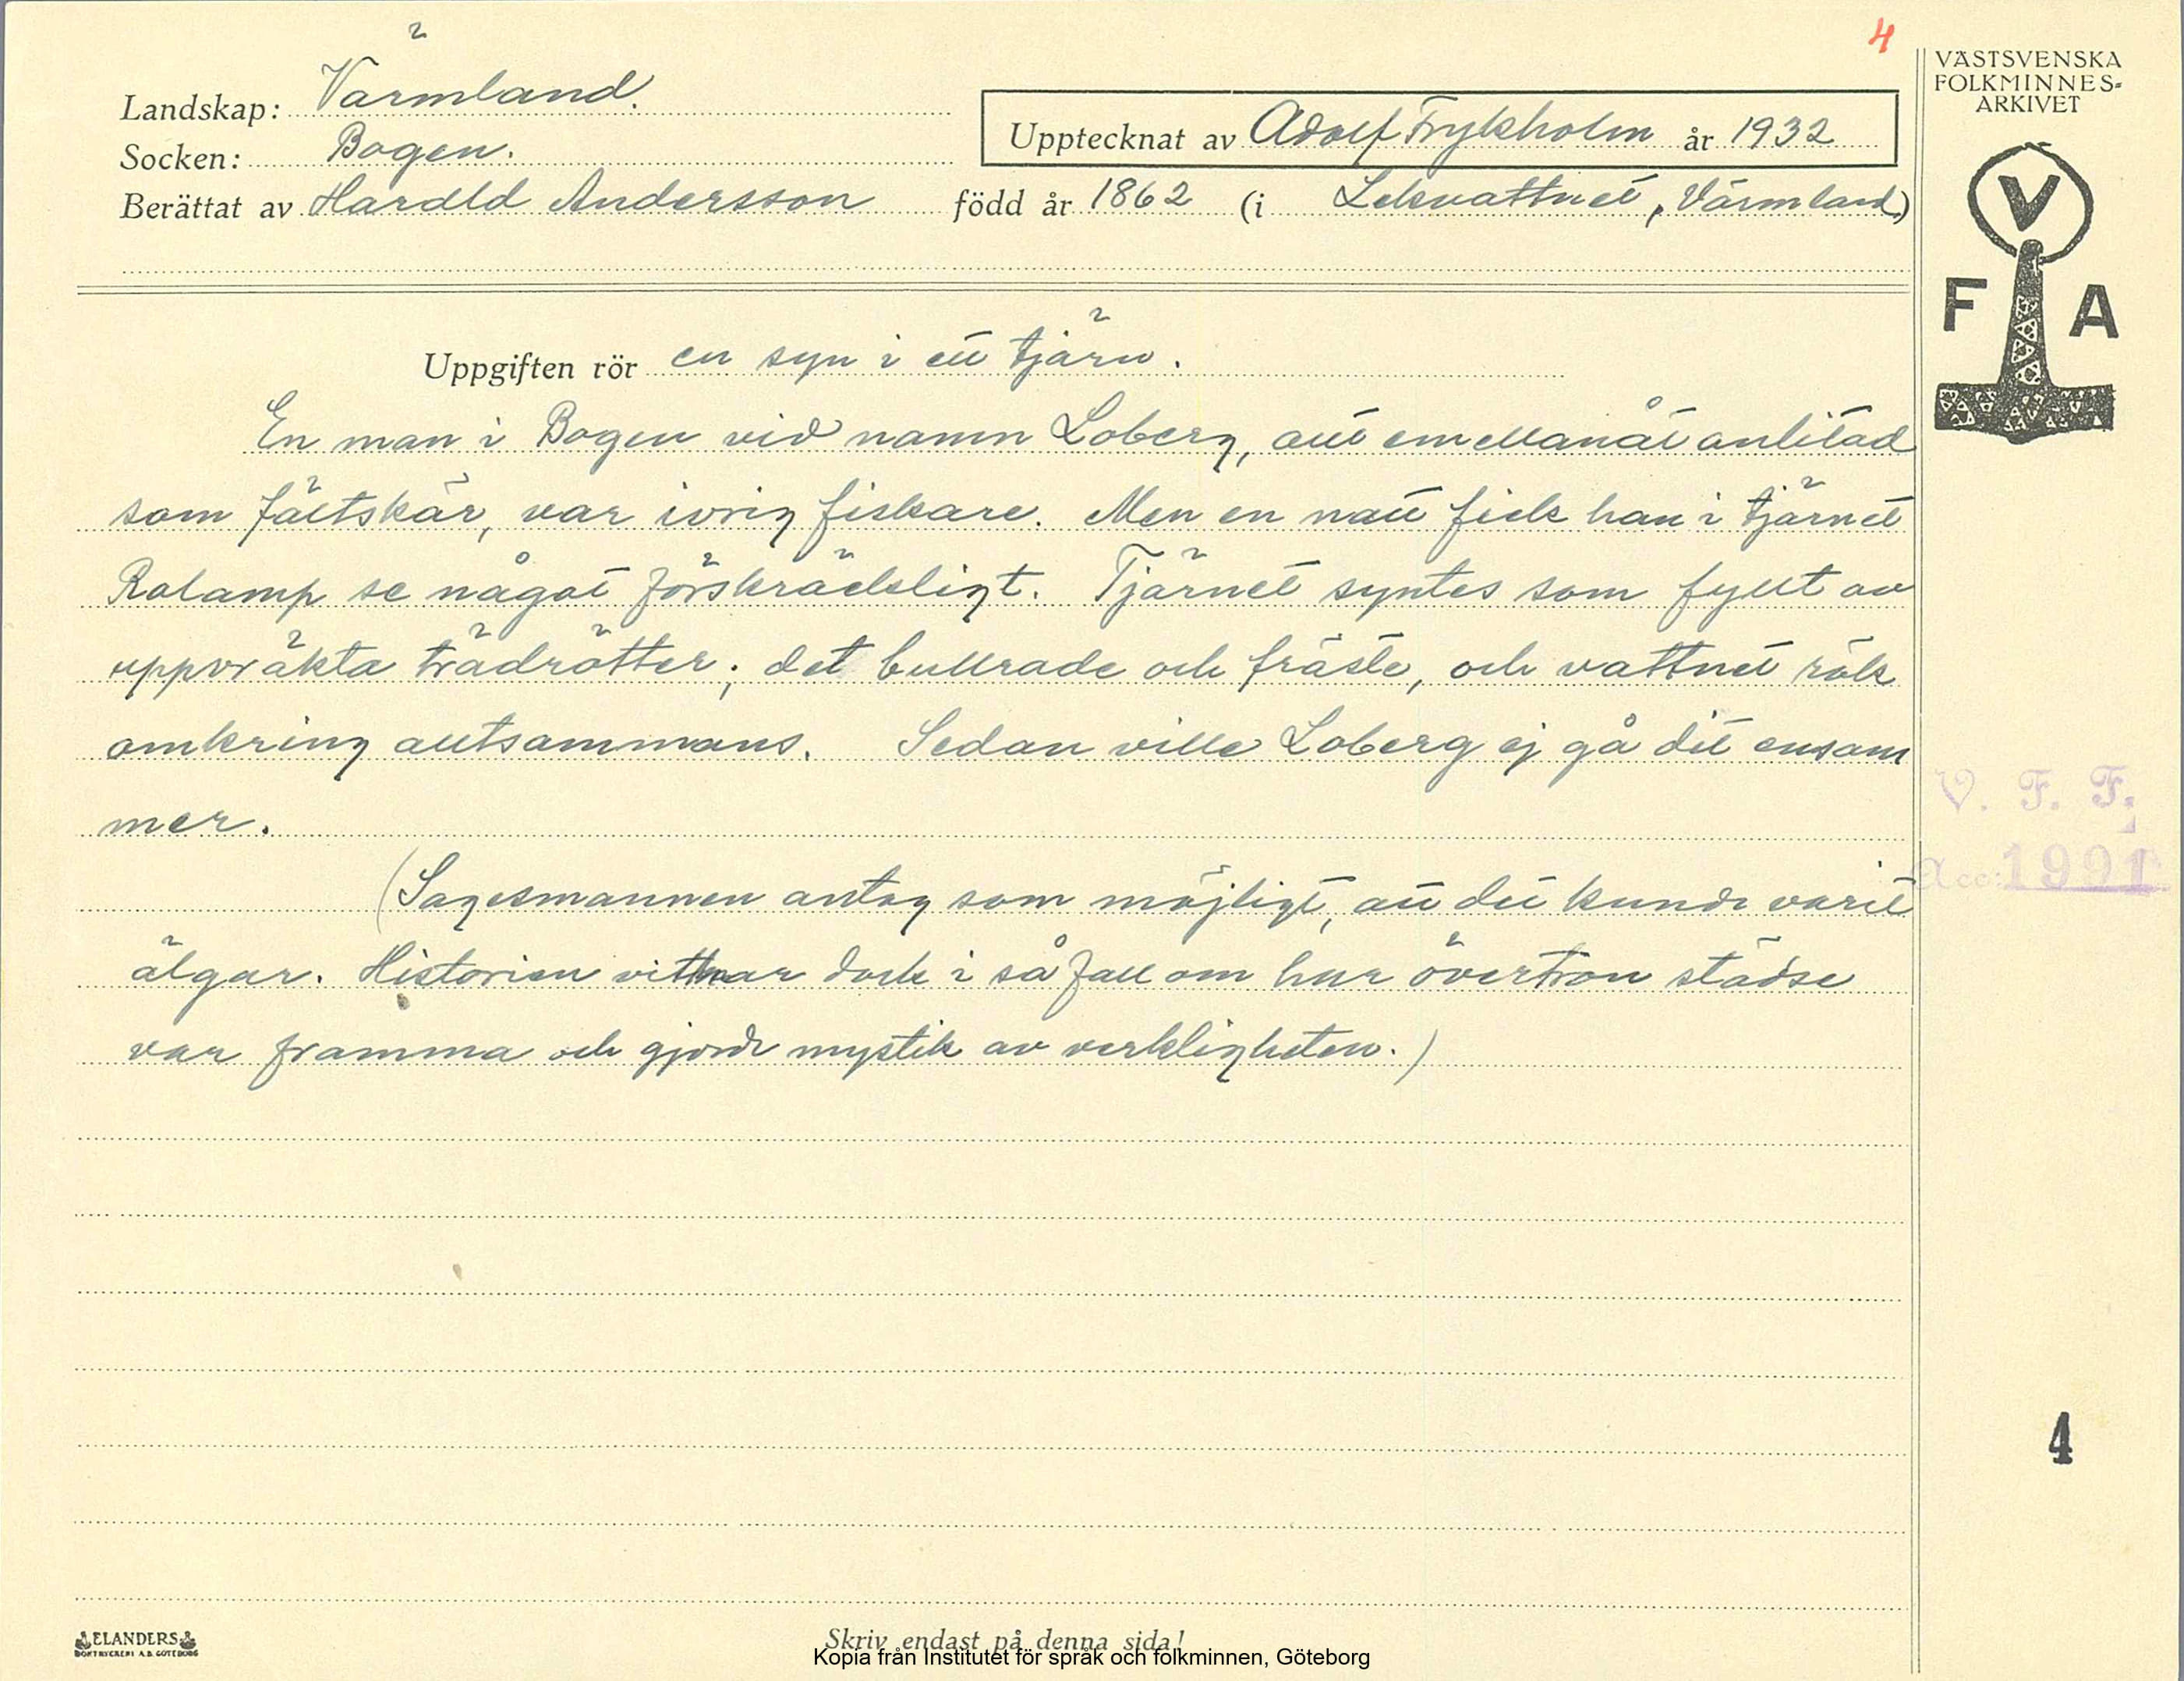 4
VÄSTSVENSKA
FOLKMINNES-
ARKIVET
Landskap: Värmland.
Socken: Bogen.
Upptecknat av Adolf Frykholm år 1932
Berättat av Harald Andersson född år 1862 (i Lekvattnet, Värmland)
V
F A
Uppgiften rör en syn i ett tjärn.
En man i Bogen vid namn Loberg, allt emellanåt anlitad
som fältskär, var ivrig fiskare. Men en natt fick han i tjärnet
Ralamp se något förskräckligt. Tjärnet syntes som fyllt av
uppvräkta trädrötter; det bullrade och fräste, och vattnet rök
omkring alltsammans. Sedan ville Loberg ej gå dit ensam
mer.
V. F. F.
Acc: 1991
(Sagesmannen antog som möjligt, att det kunde varit
älgar. Historien vittnar dock i så fall om hur övertron städse
var framma och gjorde mystik av verkligheten.)
4
ELANDERS
BOKTRYCKERI A.B. GÖTEBORG
Skriv endast på denna sida!
Kopia från Institutet för språk och folkminnen, Göteborg